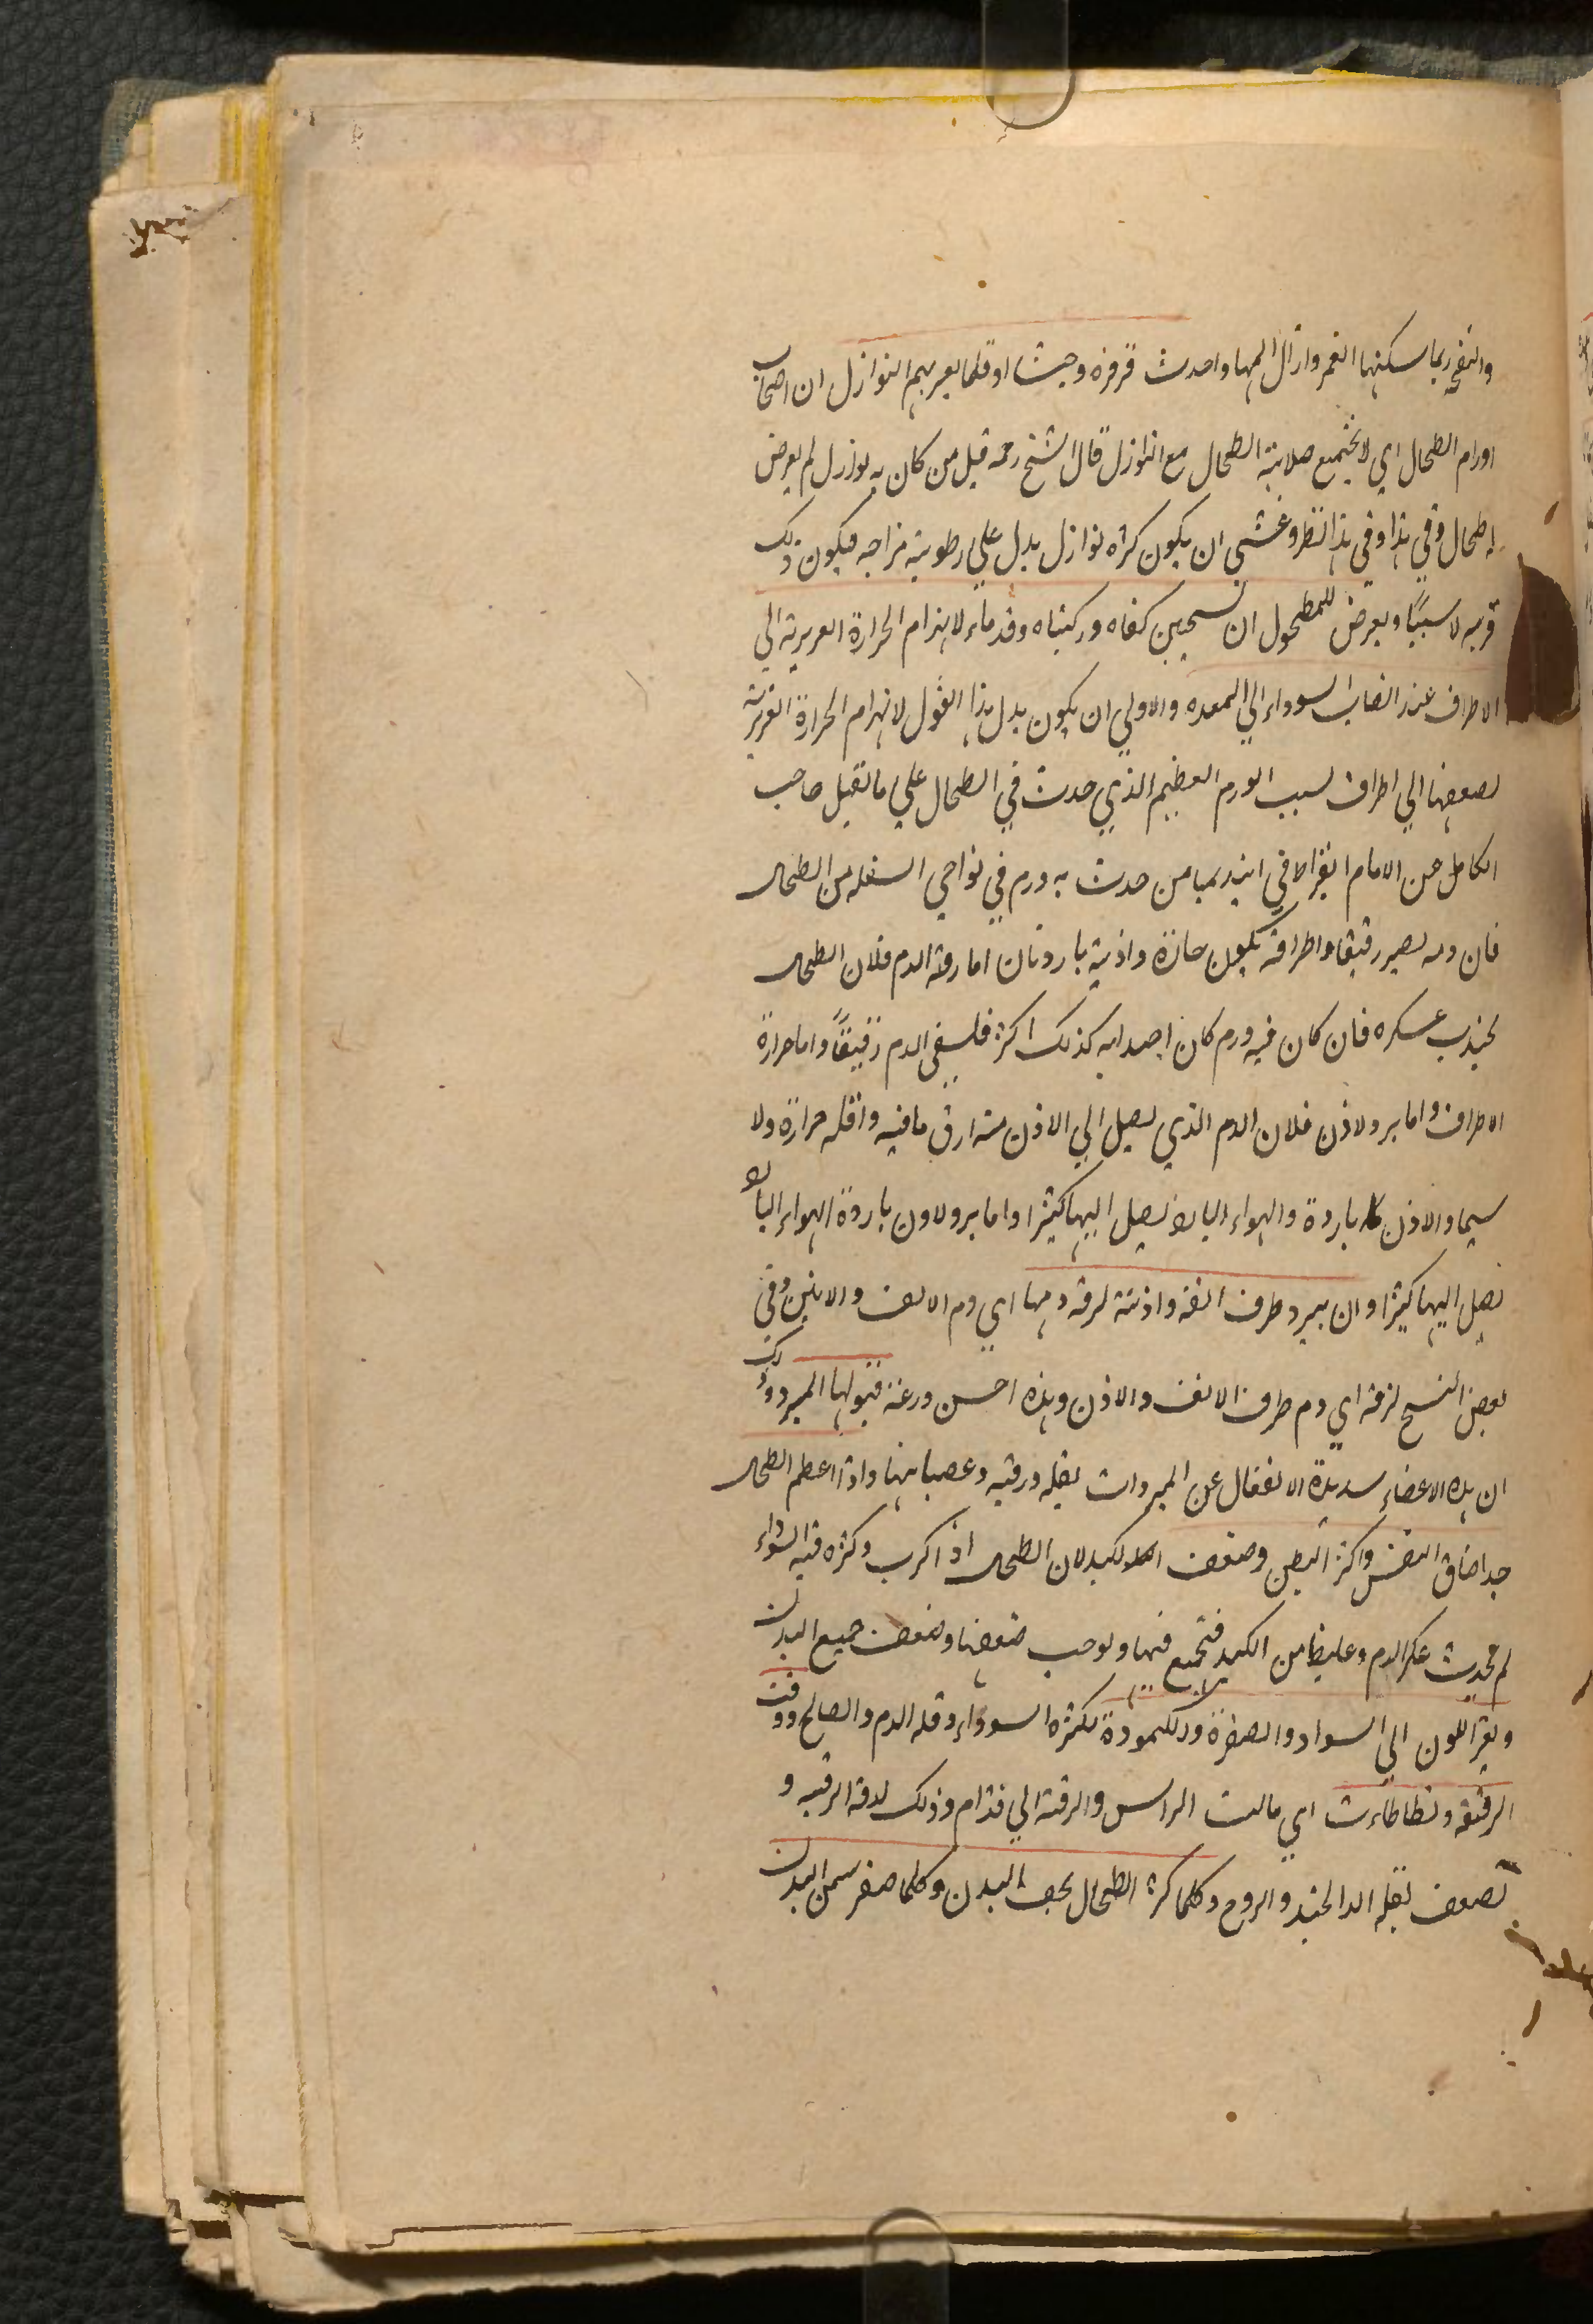 والنفخ ربما سكنها الغمر وازال المها واحدث قرقره وجشا او قلما يعر بهم النوازل ان اصحاب
اورام الطحال اي لا يجتمع صلابته الطحال مع النوازل قال الشيخ رحمه قيل من كان به نوازل لم يعرض
له طحال وفي هذا وفي هذا النظر وعسى ان يكون كثره نوازل يدل على رطوبته مزاجه فيكون ذلك
قريبه لا سببًا ويعرض للمطحول ان يسخن كفاه وركبتاه وقدماه لانهزام الحرارة الغريزية الي
الاطراف عند انصاب السوداء الي المعده والاولي ان يكون بدل هذا القول لانهزام الحرارة الغريزية
لضعفها الي اطراف لسبب الورم العظيم الذي حدث في الطحال على ما نقل صاحب
الكامل عن الامام ابقراط في ابيديميا من حدث به ورم في نواحي السفله من الطحال
فان دمه لصير رقيقا واطرافه يكون حارة واذنيه باردتان اما رقه الدم فلان الطحال
يجذب عسكره فان كان فيه ورم كان اجدابه كذلك اكثر فلسقي الدم رقيقًا واما حرارة
الاطراف واما برد لاذن فلان الدم الذي يصل الي الاذن منه ارق ما فيه واقله حرارة ولا
سيما والاذن باردة والهواء البارد يصل اليها كثيرا واما برد لاون باردة الهواء البارد
تصل اليها كثيرا وان يبرد طرف انفه واذنه لرقه دمها اي دم الانف والاذنين وفي
بعض النسخ لرقه اي دم طرف الانف والاذن وهذه احسن ورعة قبولها المبرد وذلك
ان هذه الاعضاء سديدة الانفعال عن المبردات لقله ورقته وعصبانيها واذا اعظم الطحال
جدا ضاق النفس واكثر البطن وضعف الكبد لان الطحال اذا كرب وكثره فيه السوداء
لم يحدث عكر الدم وعليظا من الكبد فتجمع فيها ولوحب ضعفها وضعف جميع البدن
ويغير اللون الي السواد والصفرة والكمودة لكثره السوداء وقله الدم والصالح ودقت
الرقبة وتطاطاءت اي مالت الراس والرقبه الي قدام وذلك لدقه الرقبه و
تضعف لقله الدا لجيد والروح وكلما كثر الطحال يحف البدن وكلما صغر سمن البدن